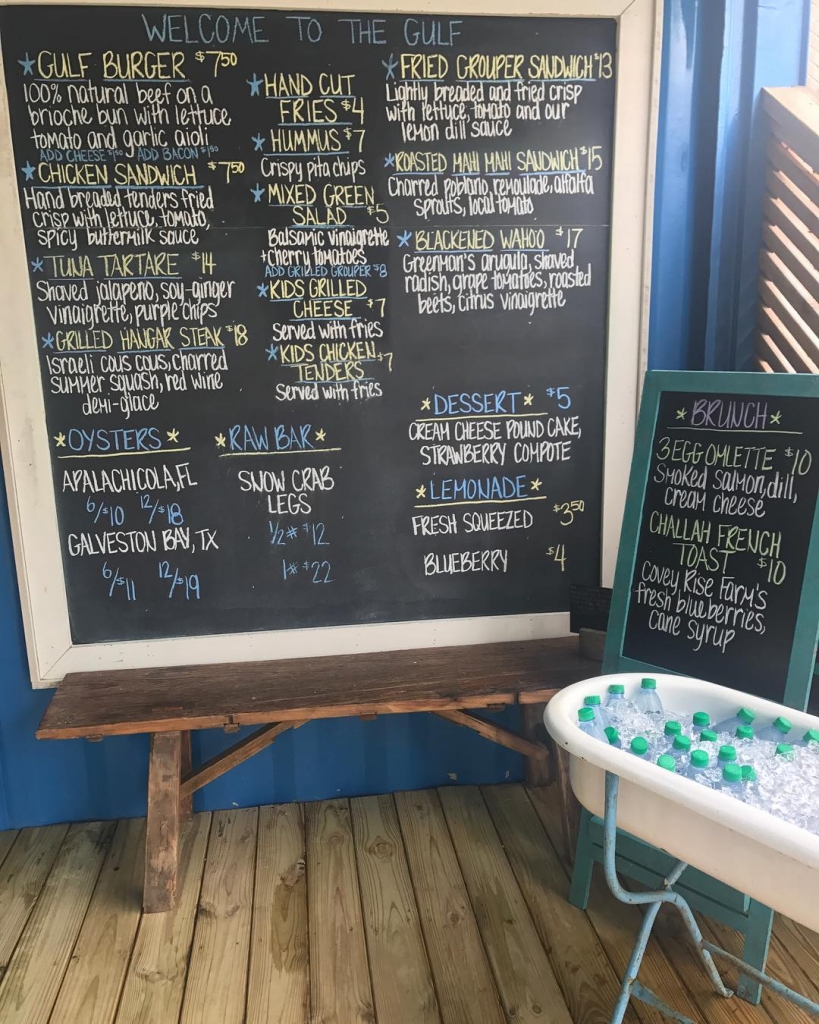 WELCOME TO THE GULF
*GULF BURGER $7.50
100% natural beef on a
brioche bun with lettuce
tomato and garlic aioli
ADD CHEESE $1.50 ADD BACON $1.50
*CHICKEN SANDWICH $7.50
Hand breaded tenders fried
crisp with lettuce, tomato,
spicy buttermilk sauce
*TUNA TARTARE $14
Shaved jalapeno, soy-ginger
vinaigrette, purple chips
*GRILLED HANGAR STEAK $18
Israeli cous cous, charred
summer squash, red wine
demi-glace
*HAND CUT
FRIES $4
*HUMMUS $7
Crispy pita chips
*MIXED GREEN
SALAD $5
Balsamic vinaigrette
+cherry tomatoes
ADD GRILLED GROUPER $8
*KIDS GRILLED
CHEESE $7
Served with fries
*KIDS CHICKEN
TENDERS $7
Served with fries
*FRIED GROUPER SANDWICH $13
Lightly breaded and fried crisp
with lettuce, tomato and our
lemon dill sauce
*ROASTED MAHI MAHI SANDWICH $15
Charred poblano, remoulade, alfalfa
sprouts, local tomato
*BLACKENED WAHOO $17
Greenman's arugula, shaved
radish, grape tomatoes, roasted
beets, citrus vinaigrette
*OYSTERS*
APALACHICOLA, FL
6/$10 12/$18
GALVESTON BAY, TX
6/$11 12/$19
*RAW BAR*
SNOW CRAB
LEGS
1/2# $12
1# $22
*DESSERT* $5
CREAM CHEESE POUND CAKE,
STRAWBERRY COMPOTE
*LEMONADE*
FRESH SQUEEZED $3.50
BLUEBERRY $4
*BRUNCH*
3 EGG OMLETTE $10
Smoked salmon, dill,
cream cheese
CHALLAH FRENCH
TOAST $10
Covey Rise Farm's
fresh blueberries,
cane syrup